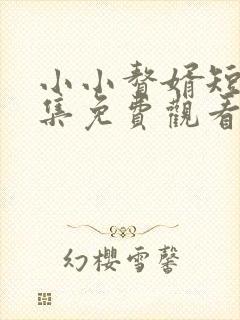 小小贅婿短
集免費觀看
幻櫻雪馨